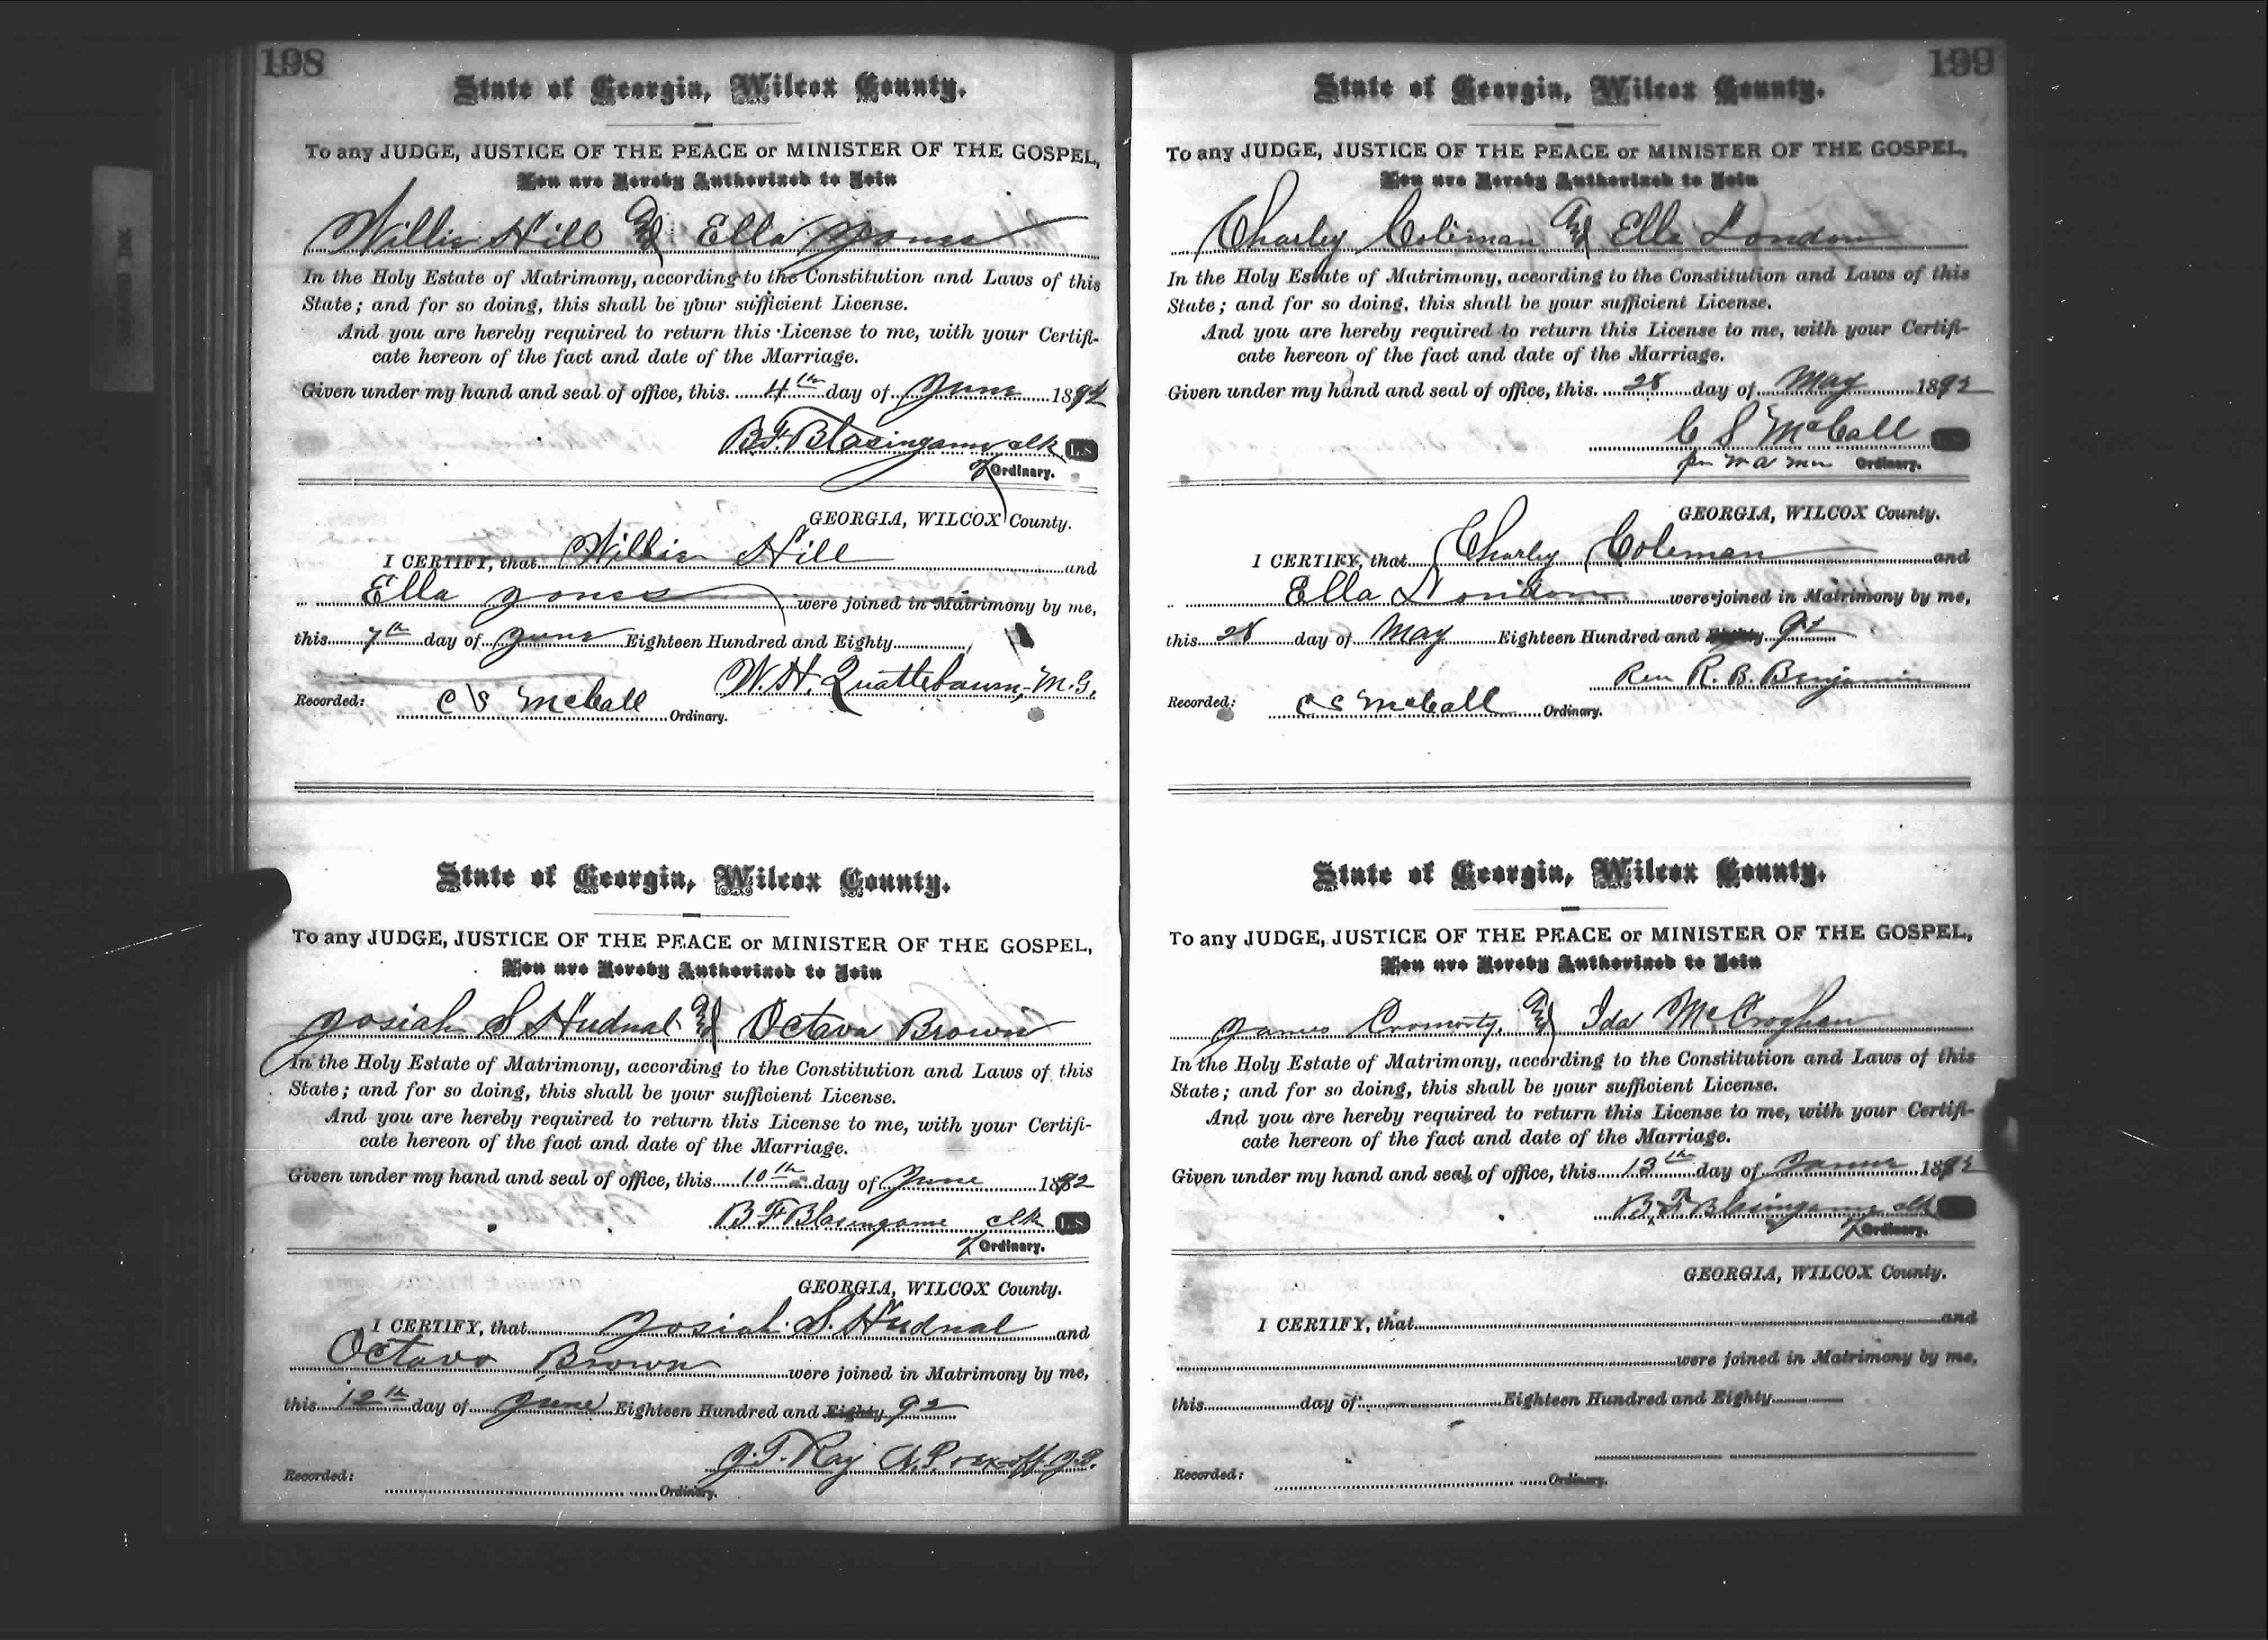 198
State of Georgia, Wilcox County.
To any JUDGE, JUSTICE OF THE PEACE or MINISTER OF THE GOSPEL,
You are Hereby Authorized to Join
Willie Hill and Ella Jones
In the Holy Estate of Matrimony, according to the Constitution and Laws of this
State; and for so doing, this shall be your sufficient License.
And you are hereby required to return this License to me, with your Certifi-
cate hereon of the fact and date of the Marriage.
Given under my hand and seal of office, this 4th day of June 1892
B.F. Blasingame clk L.S
of Ordinary.
GEORGIA, WILCOX County.
I CERTIFY, that Willie Hill and
Ella Jones were joined in Matrimony by me,
this 7th day of June Eighteen Hundred and Eighty
W. H. Quattlebaum, M.G.
Recorded: C S McCall Ordinary.
State of Georgia, Wilcox County.
To any JUDGE, JUSTICE OF THE PEACE or MINISTER OF THE GOSPEL,
You are Hereby Authorized to Join
Josiah S Hudnal and Octava Brown
In the Holy Estate of Matrimony, according to the Constitution and Laws of this
State; and for so doing, this shall be your sufficient License.
And you are hereby required to return this License to me, with your Certifi-
cate hereon of the fact and date of the Marriage.
Given under my hand and seal of office, this 10th day of June 1892
B F Blasengame clk L.S
of Ordinary.
GEORGIA, WILCOX County.
I CERTIFY, that Josiah S. Hudnal and
Octavo Brown were joined in Matrimony by me,
this 12th day of June Eighteen Hundred and Eighty 92
J.T. Ray N.P. & ex off J.P.
Recorded: Ordinary.
199
State of Georgia, Wilcox County.
To any JUDGE, JUSTICE OF THE PEACE or MINISTER OF THE GOSPEL,
You are Hereby Authorized to Join
Charley Coleman and Ella London
In the Holy Estate of Matrimony, according to the Constitution and Laws of this
State; and for so doing, this shall be your sufficient License.
And you are hereby required to return this License to me, with your Certifi-
cate hereon of the fact and date of the Marriage.
Given under my hand and seal of office, this 28 day of May 1892
C S McCall
per Ordinary.
GEORGIA, WILCOX County.
I CERTIFY, that Charley Coleman and
Ella London were joined in Matrimony by me,
this 28 day of May Eighteen Hundred and Eighty 92
Rev R. B. Benjamin
Recorded: C S McCall Ordinary.
State of Georgia, Wilcox County.
To any JUDGE, JUSTICE OF THE PEACE or MINISTER OF THE GOSPEL,
You are Hereby Authorized to Join
James Cromorty and Ida McCroghen
In the Holy Estate of Matrimony, according to the Constitution and Laws of this
State; and for so doing, this shall be your sufficient License.
And you are hereby required to return this License to me, with your Certifi-
cate hereon of the fact and date of the Marriage.
Given under my hand and seal of office, this 13th day of June 1892
B. F. Blasingame clk
of Ordinary.
GEORGIA, WILCOX County.
I CERTIFY, that and
were joined in Matrimony by me,
this day of Eighteen Hundred and Eighty
Recorded: Ordinary.